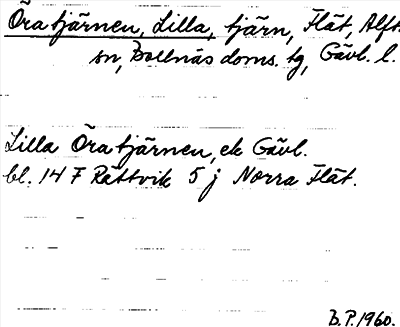 Öratjärnen, Lilla, tjärn, Flät, Alfta
sn, Bollnäs doms. tg, Gävl. l.
Lilla Öratjärnen, ek Gävl.
bl. 14 F Rättvik 5 j Norra Flät.
B.P. 1960.